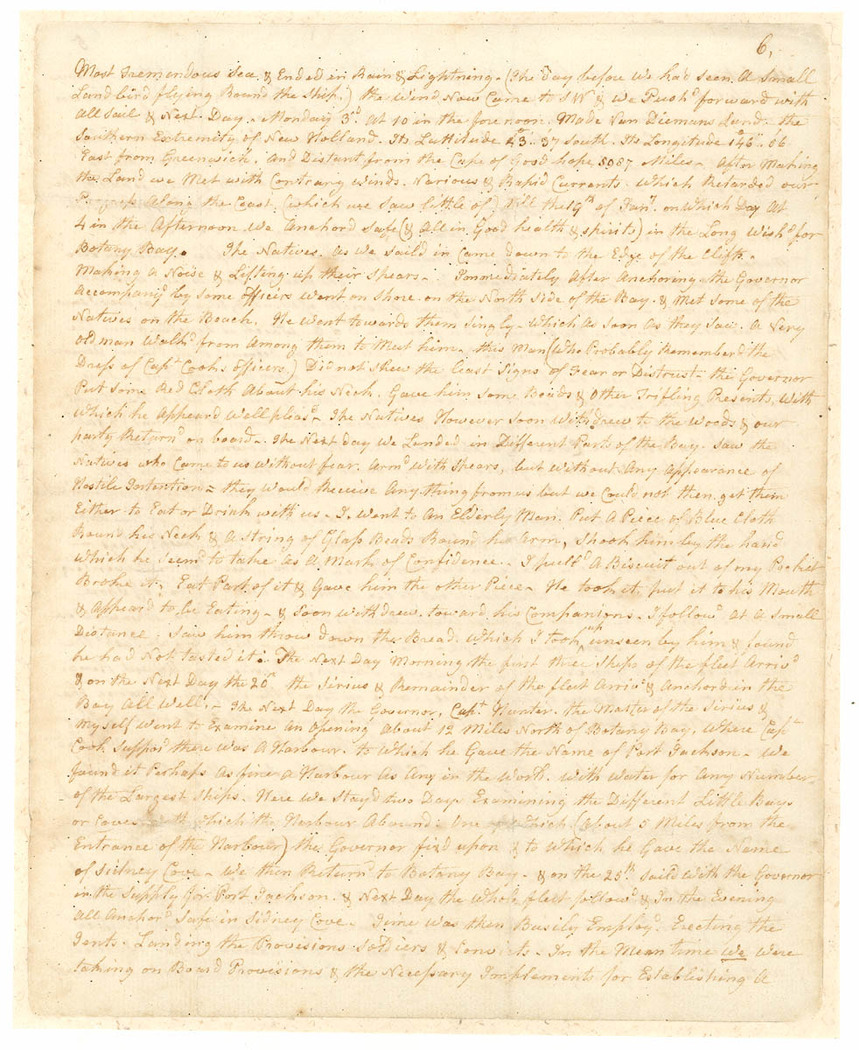 6,
Most Tremendous Sea & Ended in Rain & Lightning. (The Day before we had seen A Small
Land bird flying Round the Ship.) the Wind Now Came to SW & we Push'd forward with
All Sail & Next Day. Monday 3d At 10 in the forenoon. Made Van Diemans Land. the
Southern Extremity of New Holland. Its Lattitude 43.. 37 South. Its Longitude 146.. 06
East from Greenwich. And Distant from the Cape of Good hope 5087 Miles - After Making
the Land we Met with Contrary winds. Various & Rapid Currents. Which Retarded our
Progress Along the Coast (which we saw little of) till the 19th of Jany. on Which Day At
4 in the Afternoon we Anchord Safe (& All in Good health & spirits) in the Long Wish'd for
Botany Bay. The Natives. As we Saild in Came down to the Edge of the Clifts.
Making A Noise & Lifting up their Spears - Immediately After Anchoring the Governor
Accompani'd by some Officers went on shore on the North Side of the Bay. & Met some of the
Natives on the Beach. He Went towards them Singly. Which As soon As they Saw. A Very
Old man Walk'd from Among them to Meet him. this Man (Who Probably Rememberd the
Dress of Capt Cooks officers.) Did not shew the least Signs of Fear or Distrust. the Governor
Put Some Red Cloth About his Neck. Gave him Some Beads & Other Trifling Presents, With
Which he Appeard Well pleas'd - The Natives However soon Withdrew to the Woods & our
party Return'd on board - The Next day we Landed in Different Parts of the Bay. Saw the
Natives who Came to us Without fear. Arm'd With Spears, but Without Any Appearance of
Hostile Intention = they Would Receive Any thing from us but we Could not then get them
Either to Eat or Drink with us - I Went to An Elderly Man. Put A Piece of Blue Cloth
Round his Neck & A String of Glass Beads Round his Arm, Shook him by the hand
Which he Seem'd to take As A Mark of Confidence - I pull'd A Biscuit out of my Pocket
Broke it, Eat Part of it & Gave him the other Piece - He took it, put it to his Mouth
& Appeard to be Eating - & Soon withdrew toward his Companions. I follow'd At A Small
Distance, Saw him throw down the Bread. Which I took up unseen by him & found
he had Not tasted it. The Next Day Morning the first three Ships of the fleet Arriv'd
& on the Next Day the 20th the Sirius & Remainder of the fleet Arriv'd & Anchord in the
Bay All Well, - The Next Day the Governor, Capt Hunter. the Master of the Sirius &
Myself Went to Examine An Opening About 12 Miles North of Botany Bay, Where Capt
Cook Suppos'd there was A Harbour. to Which he Gave the Name of Port Jackson - We
found it Perhaps As fine A Harbour As Any in the World. With Water for Any Number
of the Largest Ships. Here we Stayd two Days Examining the Different Little Bays
or Coves with Which the Harbour Abounds One of Which (About 5 Miles from the
Entrance of the Harbour) the Governor fixd upon & to Which he Gave the Name
of Sidney Cove - We then Return'd to Botany Bay - & on the 25th Saild With the Governor
in the Supply for Port Jackson. & Next Day the Whole fleet follow'd & In the Evening
All Anchord Safe in Sidney Cove - Time Was then Busily Employ'd Erecting the
Tents. Landing the Provisions Soldiers & Convicts - In the Mean time We Were
taking on Board Provisions & the Necessary Implements for Establishing A